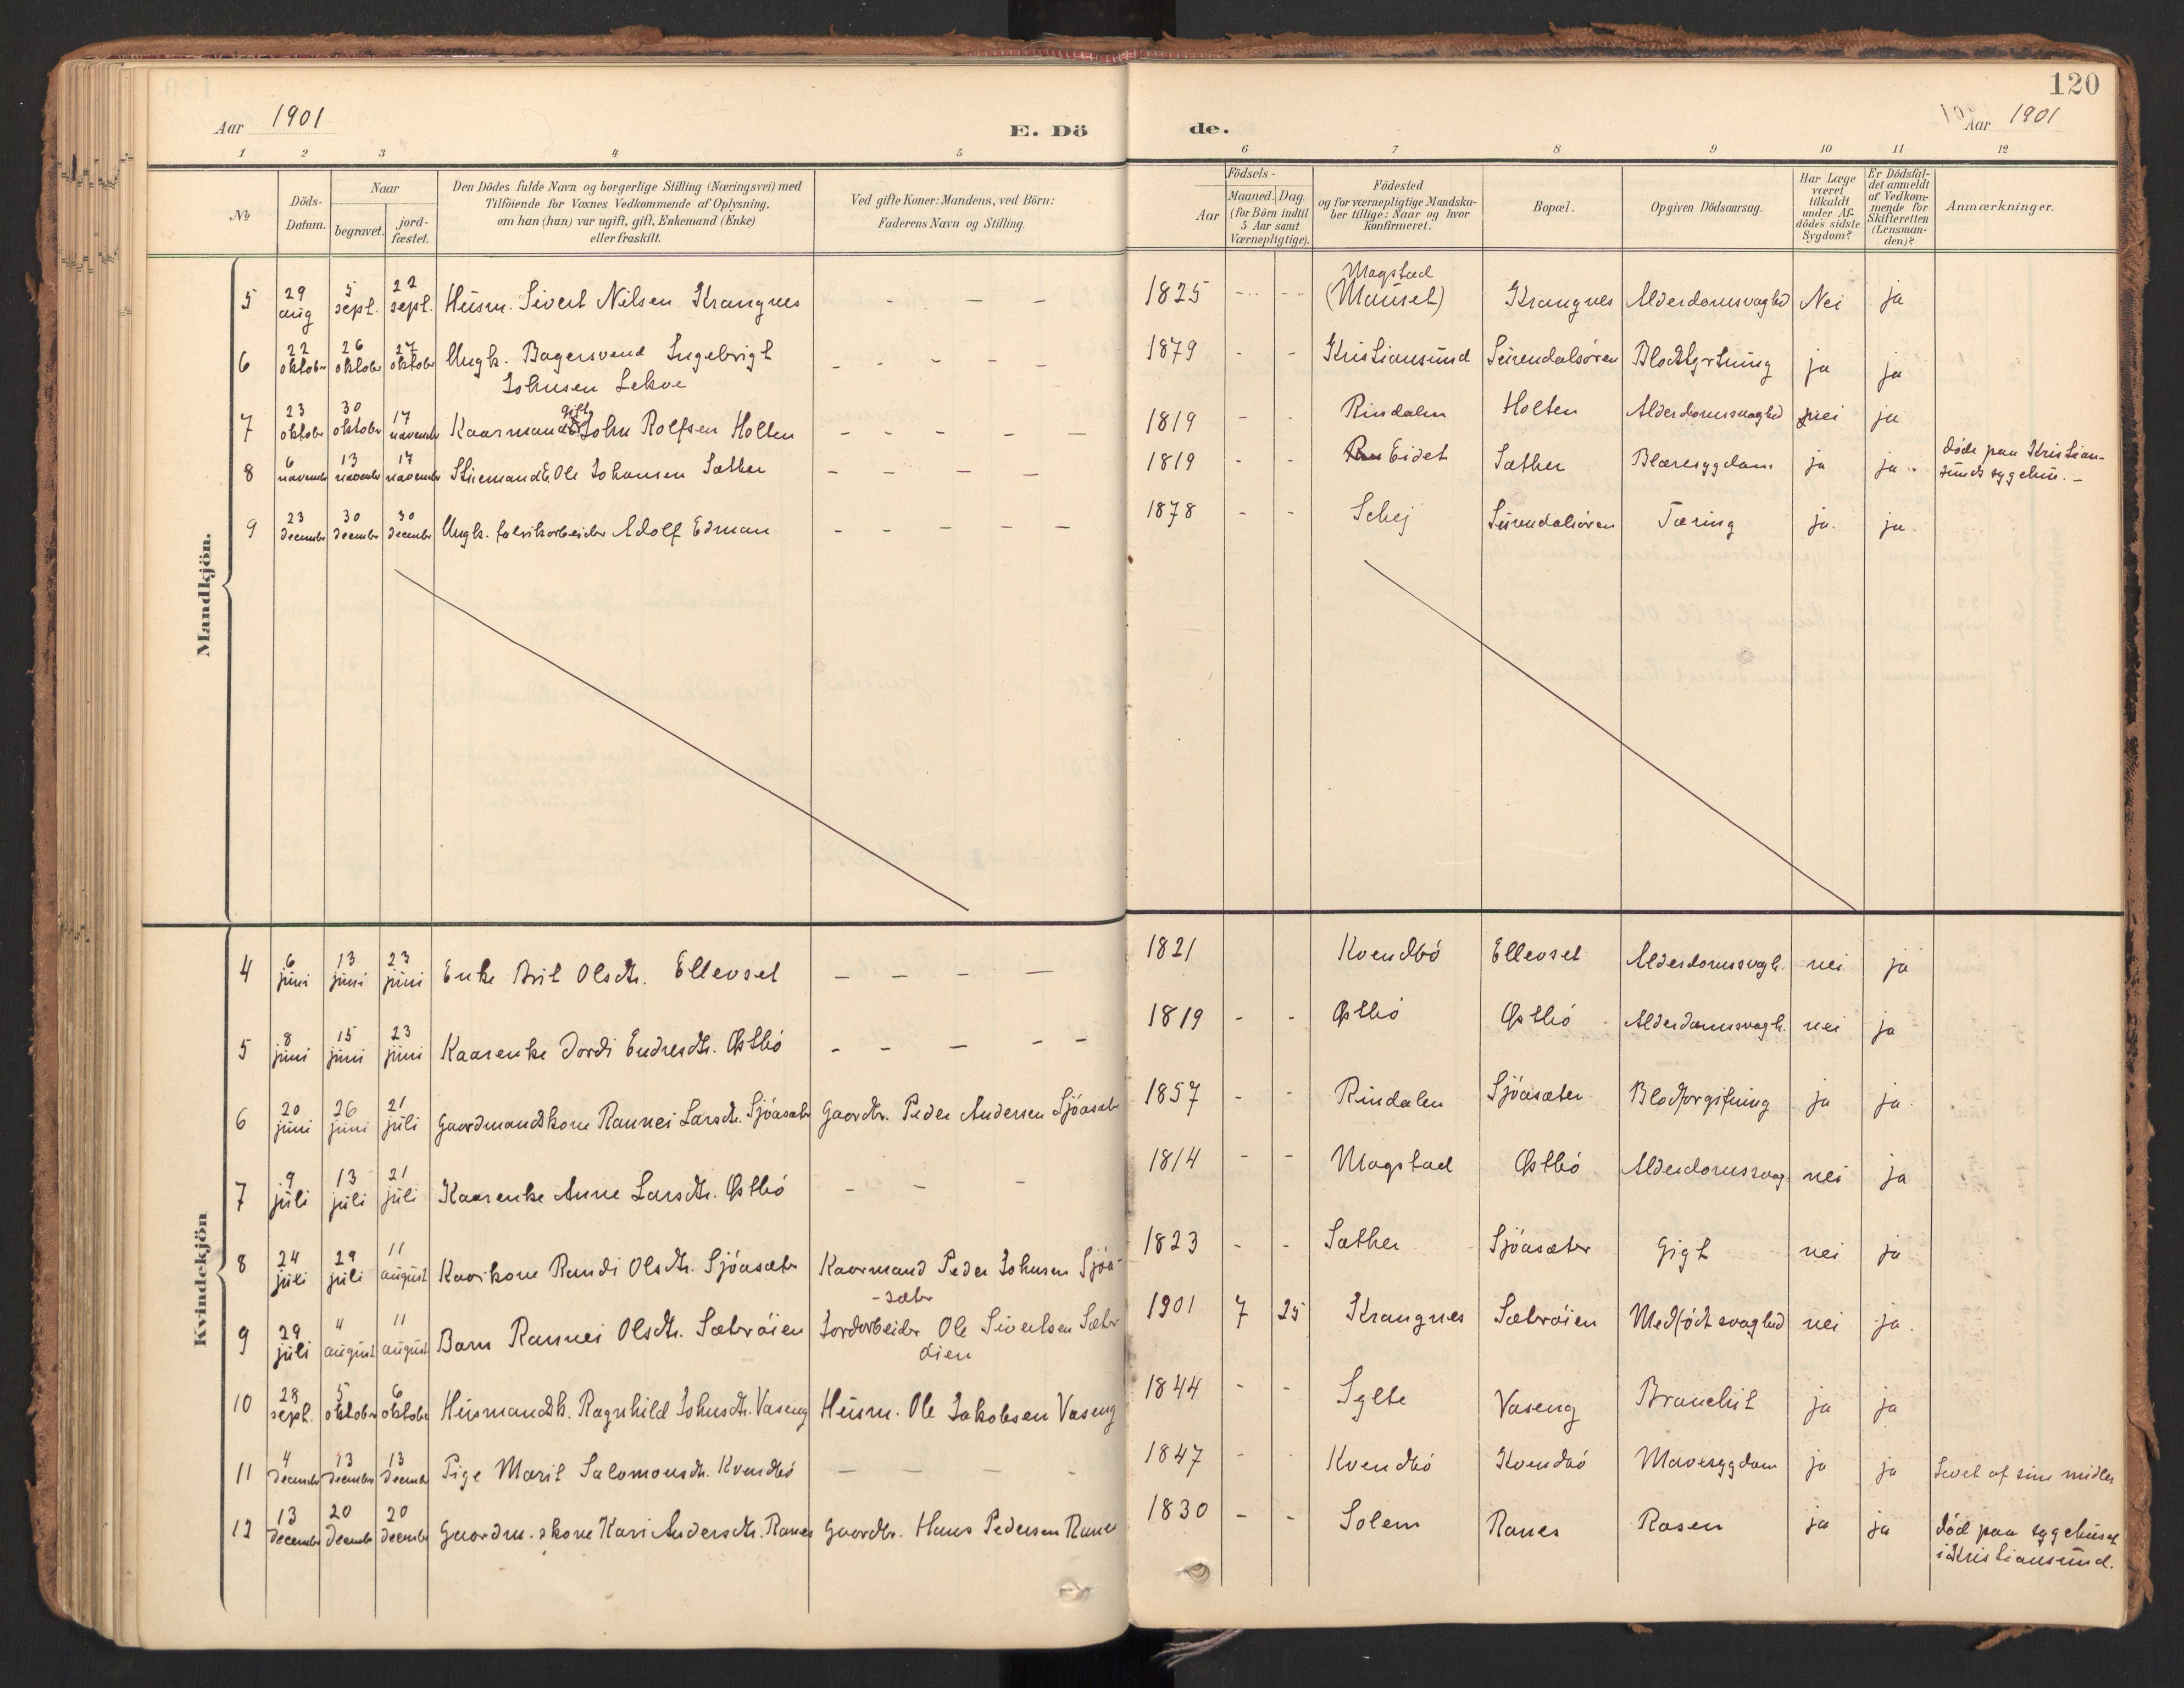 120
Aar 1901
E. Dö
de.
Aar 1901
1 2 3 4 5 6 7 8 9 10 11 12
№
Döds-
Datum.
Naar
begravet.
jord-
fæstet.
Den Dödes fulde Navn og borgerlige Stilling (Næringsvei) med
Tilföiende for Voxnes Vedkommende af Oplysning,
om han (hun) var ugift, gift, Enkemand (Enke)
eller fraskilt.
Ved gifte Koner: Mandens, ved Börn:
Faderens Navn og Stilling.
Födsels-
Aar
Maaned. Dag.
(for Börn indtil
5 Aar samt
Værnepligtige).
Födested
og for værnepligtige Mandska-
ber tillige: Naar og hvor
konfirmeret.
Bopæl.
Opgiven Dödsaarsag.
Har Læge
været
tilkaldt
under Af-
dödes sidste
Sygdom?
Er Dödsfal-
det anmeldt
af Vedkom-
mende for
Skifteretten
(Lensman-
den)?
Anmærkninger.
Mandkjön.
5 29 aug 5 sept. 22 sept. Husm. Sivert Nilsen Krangnes - - - 1825 - - Magstad (Mauset) Krangnes Alderdomsvaghed Nei ja
6 22 oktober 26 oktober 27 oktober Ungk. Bagersvend Ingebrigt
Johnsen Lekve - - - - 1879 - - Kristiansund Surendalsøren Blodstyrtning ja ja
7 23 oktober 30 oktober 17 november Kaarmand gift John Rolfsen Holten - - - - - 1819 - - Rindalen Holten Alderdomssvaghed nei ja
8 6 november 13 november 17 november Ole Johansen Sæther - - - - 1819 - - Eidet Sæther Blæresygdom ja ja døde paa Kristian-
sunds sygehus.
9 23 december 30 december 30 december Ungk. fabrikarbeider Adolf Edman - - - - - 1878 - - Schej Surendalsøren Tæring ja. ja.
Kvindekjön
4 6 juni 13 juni 23 juni Enke Brit Olsdtr. Ellevset - - - - 1821 Kvendbø Ellevset Alderdomssvagh. nei ja
5 8 juni 15 juni 23 juni Kaarenke Jordi Endresdtr. Østbø - - - - - 1819 - - Østbø Østbø Alderdomssvagh. nei ja
6 20 juni 26 juni 21 juli Gaardmandskone Rannei Larsdtr. Sjøasæter Gaardbr. Peder Andersen Sjøasæter 1857 - - Rindalen Sjøasæter Blodforgiftning ja ja
7 9 juli 13 juli 21 juli Kaarenke Anne Larsdtr. Østbø - - - 1814 - - Magstad Østbø Alderdomssvag. nei ja
8 24 juli 29 juli 11 august Kaarkone Randi Olsdtr. Sjøasæter Kaarmand Peder Johnsen Sjøa-
-sæter 1823 - - Sæther Sjøasæter Gigt nei ja
9 29 juli 4 august 11 august Barn Rannei Olsdtr. Sæterøien Jordarbeider Ole Sivertsen Sæter
øien 1901 7 25 Krangnes Sæterøien Medfødt svaghed nei ja.
10 28 sept. 5 oktober 6 oktober Husmandsk. Ragnhild Johnsdtr. Vaseng Husm. Ole Jakobsen Vaseng 1844 - - Sylte Vaseng Bronchit ja ja
11 4 december 13 december 13 december Pige Marit Salomonsdtr. Kvendbø - - - - 1847 - - Kvendbø Kvendbø Mavesygdom ja ja Levet af sine midler
12 13 december 20 december 20 december Gaardm.skone Kari Andersdtr. Ranes Gaardbr. Hans Pedersen Ranes 1830 - - Solem Ranes Rosen ja ja død paa sygehuset
i Kristiansund.